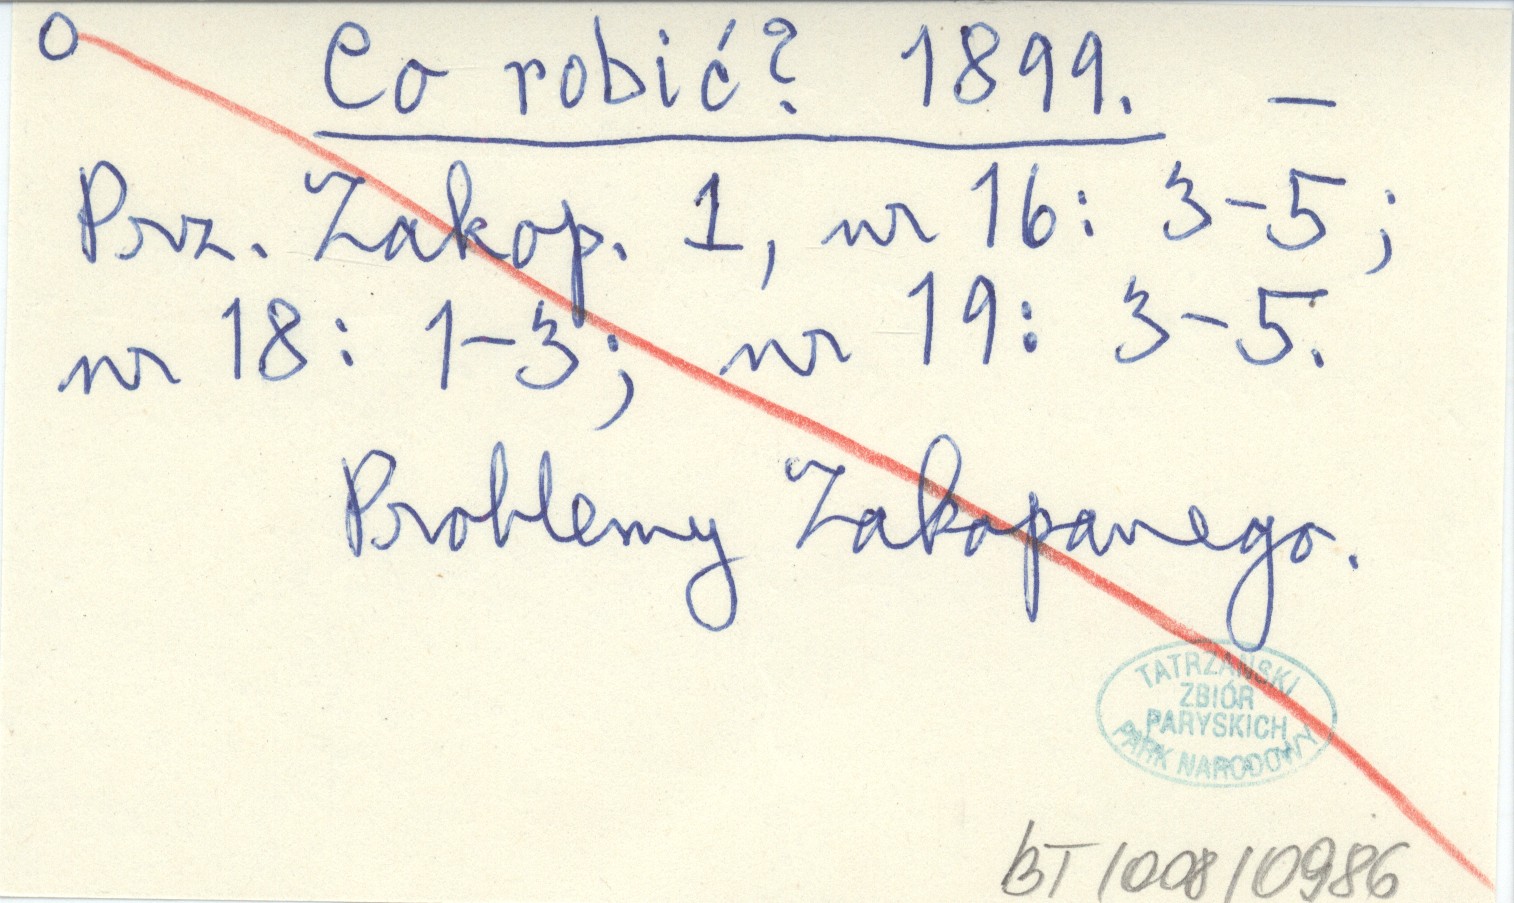 O Co robić? 1899. —
Prz. Zakop. 1, nr 16: 3-5;
nr 18: 1-3; nr 19: 3-5.
Problemy Zakopanego.
TATRZAŃSKI
ZBIÓR
PARYSKICH
PARK NARODOWY
BT/008/0986